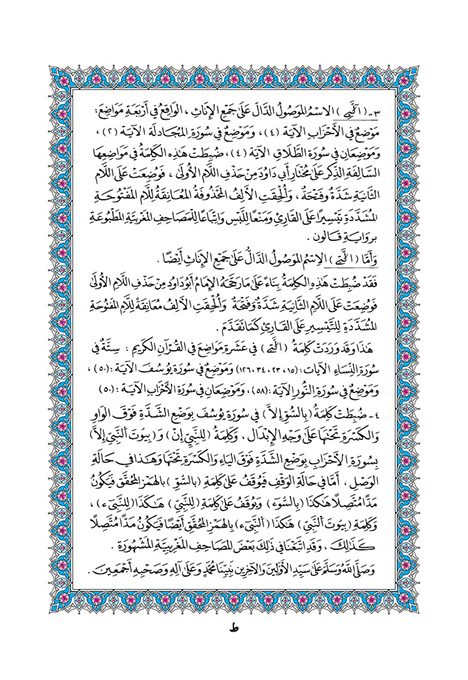 ٣ـ (اَلَّٰے) الاسمُ الموصُولُ الدّالُ عَلىٰ جَمْعِ الإناثِ، الوَاقِعُ فى أَرْبَعَةِ مَوَاضِعَ:
مَوضِعٌ فِي الأَحْزَابِ الآيَة (٤)، وَمَوْضِعٌ فِي سُورَةِ المُجَادَلَةِ الآيَة (٢)،
وَمَوْضِعَانِ فِي سُورَةِ الطَّلَاقِ الآيَة (٤)، ضُبِطَتْ هٰذِهِ الكَلِمَةُ فِي مَوَاضِعِهَا
السَّالِفَةِ الذِّكْرِ عَلىٰ مُخْتَارِ أَبِي دَاوُدَ مِنْ حَذْفِ اللَّامِ الأُولىٰ، فَوُضِعَتْ عَلَى اللَّامِ
الثَّانِيَةِ شَدَّةٌ وَفَتْحَةٌ، وَأُلْحِقَتِ الأَلِفُ المَحْذُوفَةُ المُعَانِقَةُ لِلَّامِ المَفْتُوحَةِ
المُشَدَّدَةِ تَيْسِيرًا عَلَى القَارِئِ وَمَنْعًا لِلَّبْسِ وَاتِّبَاعًا لِلْمَصَاحِفِ المَغْرِبِيَّةِ المَطْبُوعَةِ
بِرِوَايَةِ قَالُون.
وَأَمَّا (اَلَّٰتِے) الاِسْمُ المَوْصُولُ الدَّالُّ عَلىٰ جَمْعِ الإِنَاثِ أَيْضًا.
فَقَدْ ضُبِطَتْ هٰذِهِ الكَلِمَةُ بِنَاءً عَلىٰ مَا رَجَّحَهُ الإِمَامُ أَبُودَاوُدَ مِنْ حَذْفِ اللَّامِ الأُولىٰ
فَوُضِعَتْ عَلَى اللَّامِ الثَّانِيَةِ شَدَّةٌ وَفَتْحَةٌ وَأُلْحِقَتِ الأَلِفُ مُعَانِقَةً لِلَّامِ المَفْتُوحَةِ
المُشَدَّدَةِ لِلتَّيْسِيرِ عَلَى القَارِئِ كَمَا تَقَدَّمَ.
هٰذَا وَقَدْ وَرَدَتْ كَلِمَةُ (اَلَّٰتِے) فِي عَشَرَةِ مَوَاضِعَ فِي القُرْآنِ الكَرِيمِ: سِتَّةٌ فِي
سُورَةِ النِّسَاءِ الآيَات: (١٥، ٢٣، ٣٤، ١٢٦) وَمَوْضِعٌ فِي سُورَةِ يُوسُفَ الآيَة: (٥٠)،
وَمَوْضِعٌ فِي سُورَةِ النُّورِ الآيَة: (٥٨)، وَمَوْضِعَانِ فِي سُورَةِ الأَحْزَابِ الآيَة: (٥٠)
٤ـ ضُبِطَتْ كَلِمَةُ (بِالسُّوِّ إِلَّا) فِي سُورَةِ يُوسُفَ بِوَضْعِ الشَّدَّةِ فَوْقَ الوَاوِ
وَالكَسْرَةِ تَحْتَهَا عَلىٰ وَجْهِ الإِبْدَالِ، وَكَلِمَةُ (لِلنَّبِيِّ إِن) وَ(بُيُوتَ النَّبِيِّ إِلَّا)
بِسُورَةِ الأَحْزَابِ بِوَضْعِ الشَّدَّةِ فَوْقَ اليَاءِ وَالكَسْرَةِ تَحْتَهَا وَهٰذَا فِي حَالَةِ
الوَصْلِ، أَمَّا فِي حَالَةِ الوَقْفِ فَيُوقَفُ عَلىٰ كَلِمَةِ (بِالسُّوِّ) بِالهَمْزِ المُحَقَّقِ فَيَكُونُ
مَدًّا مُتَّصِلًا هٰكَذَا (بِالسُّوٓءِ) وَيُوقَفُ عَلىٰ كَلِمَةِ (لِلنَّبِيِّ) هٰكَذَا (لِلنَّبِيٓءِ)،
وَكَلِمَةِ (بُيُوتَ النَّبِيِّ) هٰكَذَا (اَلنَّبِيٓءِ) بِالهَمْزِ المُحَقَّقِ أَيْضًا فَيَكُونُ مَدًّا مُتَّصِلًا
كَذٰلِكَ، وَقَدِ اتَّبَعْنَا فِي ذٰلِكَ بَعْضَ المَصَاحِفِ المَغْرِبِيَّةِ المَشْهُورَةِ.
وَصَلَّى اللهُ وَسَلَّمَ عَلىٰ سَيِّدِ الأَوَّلِينَ وَالآخِرِينَ نَبِيِّنَا مُحَمَّدٍ وَعَلىٰ آلِهِ وَصَحْبِهِ أَجْمَعِينَ.
ط